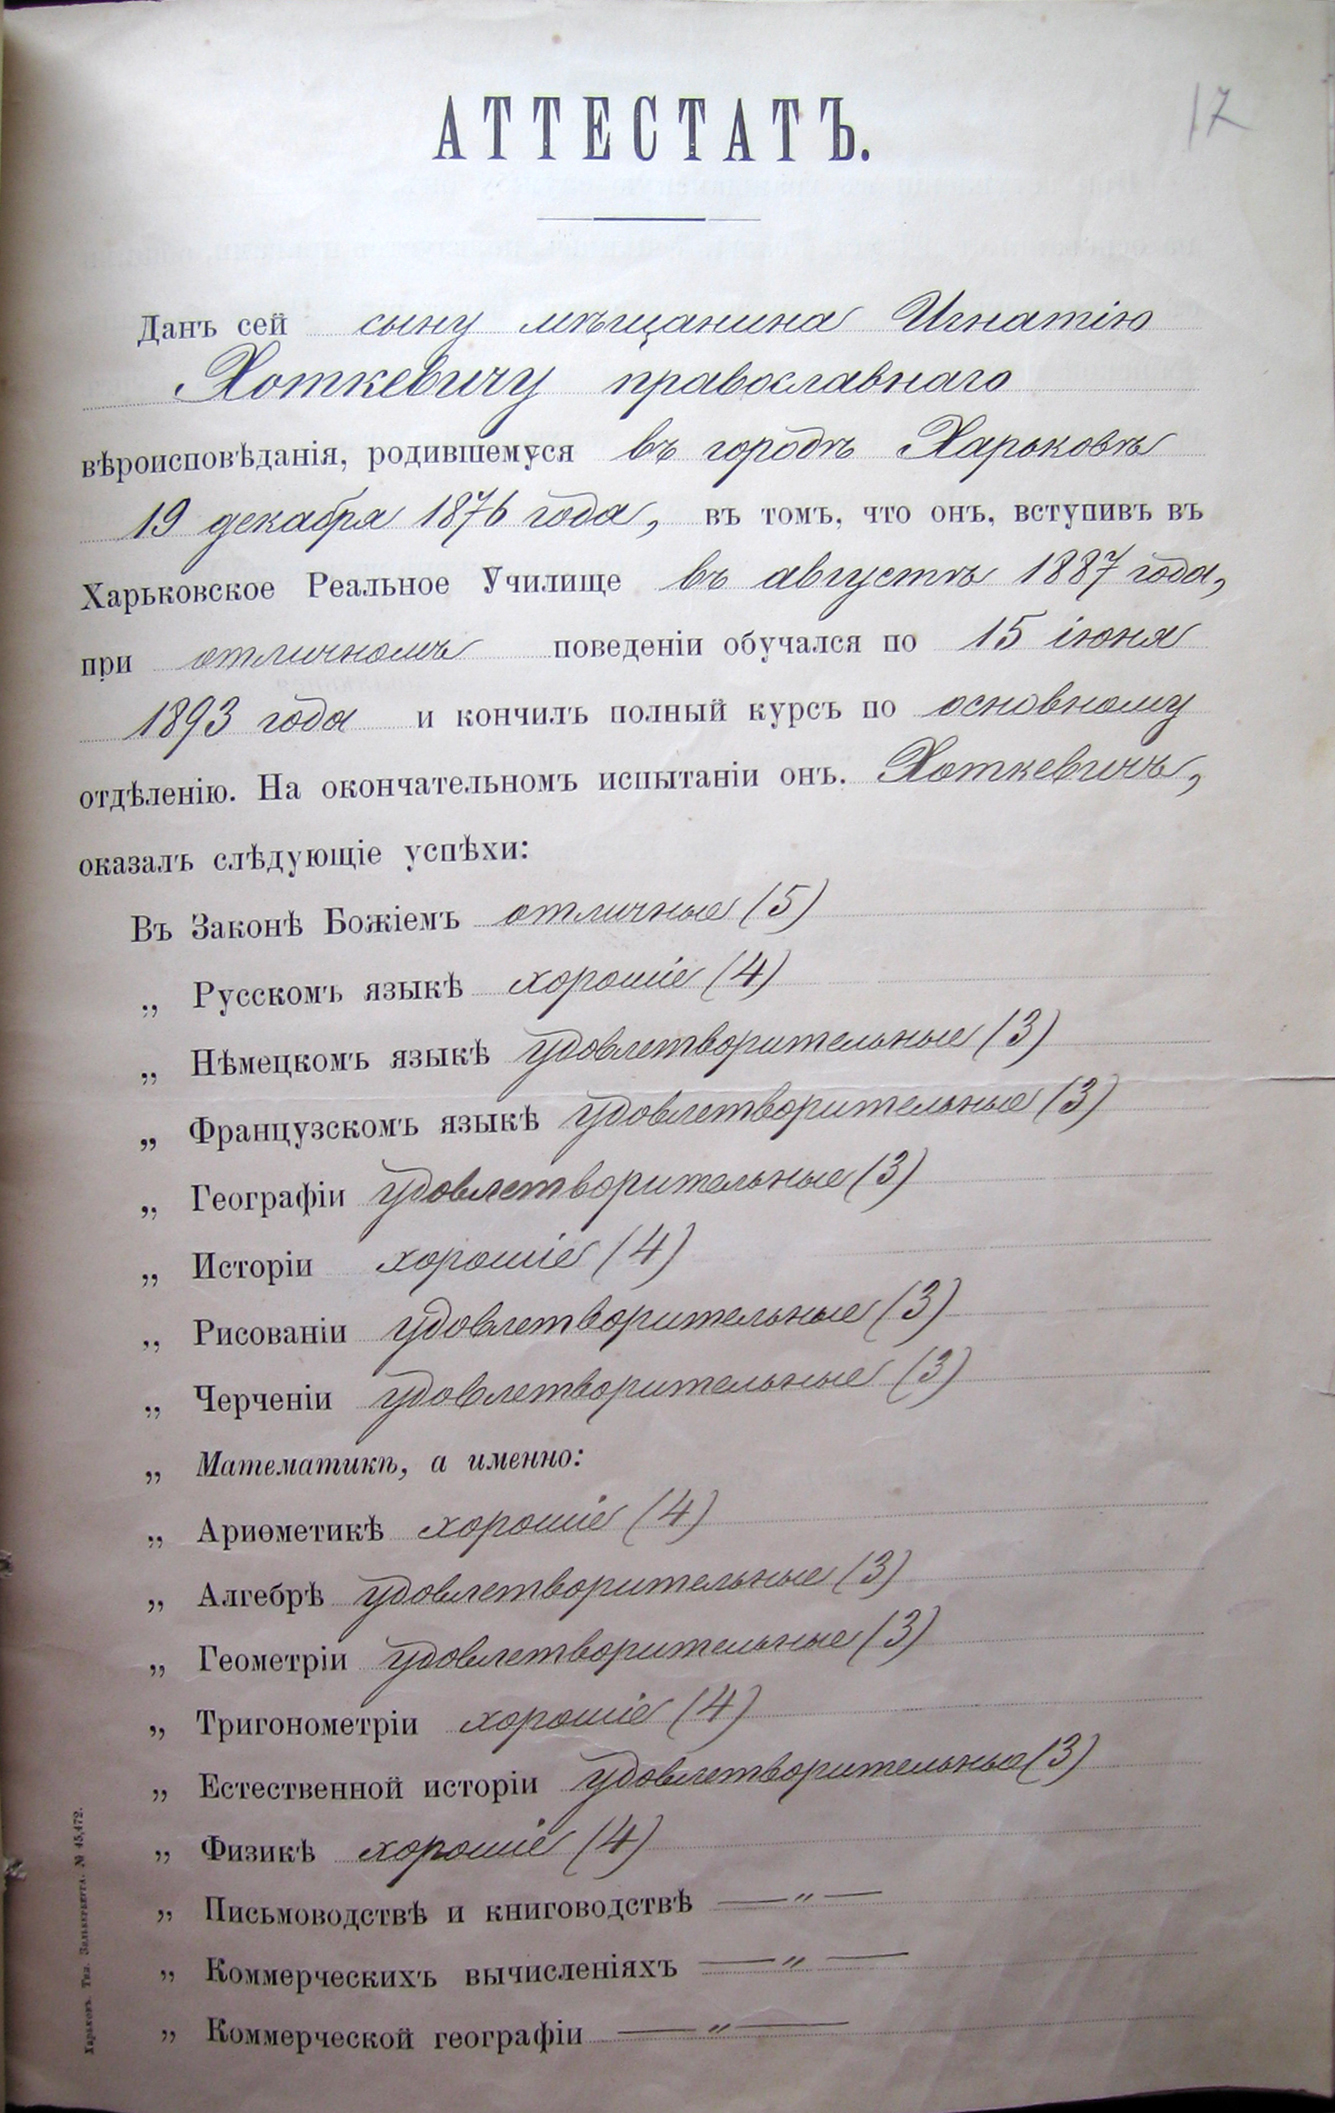 17
АТТЕСТАТЪ.
Данъ сей сыну мѣщанина Игнатію
Хоткевичу православнаго
вѣроисповѣданія, родившемуся въ городѣ Харьковѣ
19 декабря 1876 года, въ томъ, что онъ, вступивъ въ
Харьковское Реальное Училище въ августѣ 1887 года,
при отличномъ поведеніи обучался по 15 іюня
1893 года и кончилъ полный курсъ по основному
отдѣленію. На окончательномъ испытаніи онъ. Хоткевичъ,
оказалъ слѣдующіе успѣхи:
Въ Законѣ Божіемъ отличные (5)
„ Русскомъ языкѣ хорошіе (4)
„ Нѣмецкомъ языкѣ удовлетворительные (3)
„ Французскомъ языкѣ удовлетворительные (3)
„ Географіи удовлетворительные (3)
„ Исторіи хорошіе (4)
„ Рисованіи удовлетворительные (3)
„ Черченіи удовлетворительные (3)
„ Математикѣ, а именно:
„ Ариѳметикѣ хорошіе (4)
„ Алгебрѣ удовлетворительные (3)
„ Геометріи удовлетворительные (3)
„ Тригонометріи хорошіе (4)
„ Естественной исторіи удовлетворительные (3)
„ Физикѣ хорошіе (4)
„ Письмоводствѣ и книговодствѣ —„—
„ Коммерческихъ вычисленіяхъ —„—
„ Коммерческой географіи —„—
Харьковъ. Тип. Зильберберга. № 45,472.